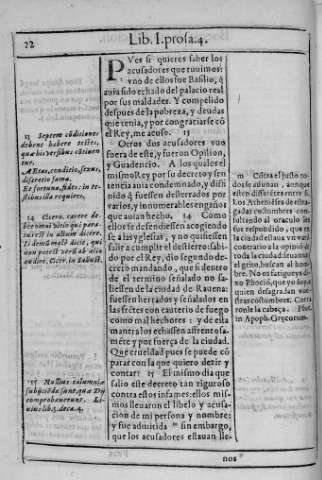 22
Lib. I. prosa. 4.
PVes si quieres saber los
acusadores que tuuimos:
vno de ellos fue Basilio, q̃
auia sido echado del palacio real
por sus maldades. Y compelido
despues de la pobreza, y deudas
que tenia, y por congraciarse cõ
el Rey, me acuso. 13
Otros dos acusadores vuo
fuera de este, y fueron Opilion,
y Gaudencio. A los quales el
mismo Rey por su decreto, y sen
tencia auia condemnado, y dissi
mulando
q̃ fuessen desterrados por
varios, y innumerables engaños
que auian hecho. 14 Como
ellos se desendiessen acogiendo
se a las yglesias, y no quisiesse
salir a cumplir el destierro: sabi-
do por el Rey, dio segundo de-
creto mandando, que si dentro
de el termino señalado no sa-
liessen de la ciudad de Rauena
fuessen herrados y señalados en
las frentes con cauterio de fuego
como malhechores: y de esta
mantra los echassen afrentosa-
mẽte y por fuerça de la ciudad.
Que crueldad pues se puede cõ
parar con la que quiero dezir y
contar? 15 El mismo dia que
salio este decreto tan riguroso
contra estos infames: ellos mis-
mos lleuaron el libelo y acusa-
cion de mi persona y nombre:
y fue admitida sin embargo,
que los acusadores estauan lle-
nos
13 Septem cõditiones
debent habere testes,
quæ his versibus cõtinen
tur.
Ætas, conditio, sexus,
discretio fama.
Et fortuna, fides: in te-
stibus ista requires.
14 Cicero. carere de-
bet omni vitio qui para-
tus est in alium dicere.
15 Nullius calumniæ
subijcienda
comprobauerunt. Li-
uius lib. 5. deca. 4.
m Cõtra el justo to-
dos se adunan, aunque
esten diffirentes entre si.
Los Athenienses de estra-
gadas costumbres con-
sultando al oraculo les
fue respondido, que en
la ciudad estaua vn varõ
contrario a la opinion de
toda la ciudad: fuaaun
al grito, buscan al hom
bre. No os fatigueys di-
xo Phocio, que yo soy a
quien desagradan vue-
stras costumbres. Corta
ronle la cabeça. Plut.
in Apoph. Græcorum.